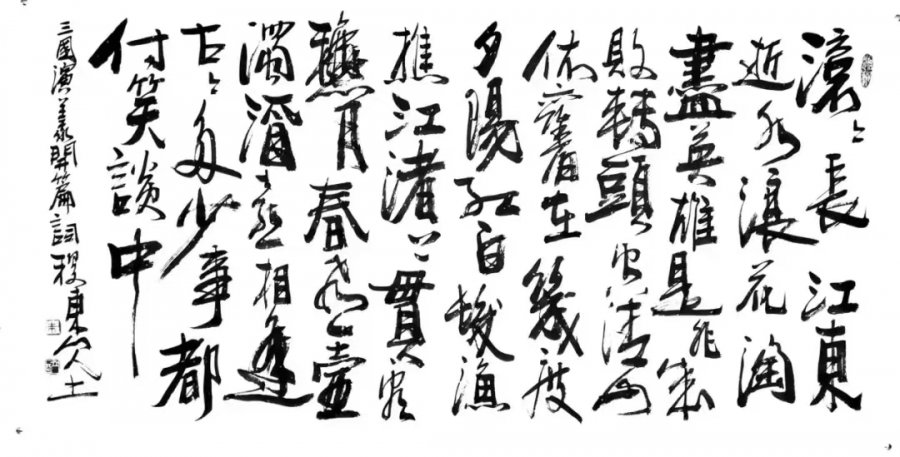 滾〻長江東
逝水浪花淘
盡英雄是非成
敗轉頭空清山
依舊在幾度
夕陽紅白髮漁
樵江渚上貫看
穐月春風一壺
濁酒喜相逢
古今多少事都
付笑談中
三國演義開篇詞 稷東